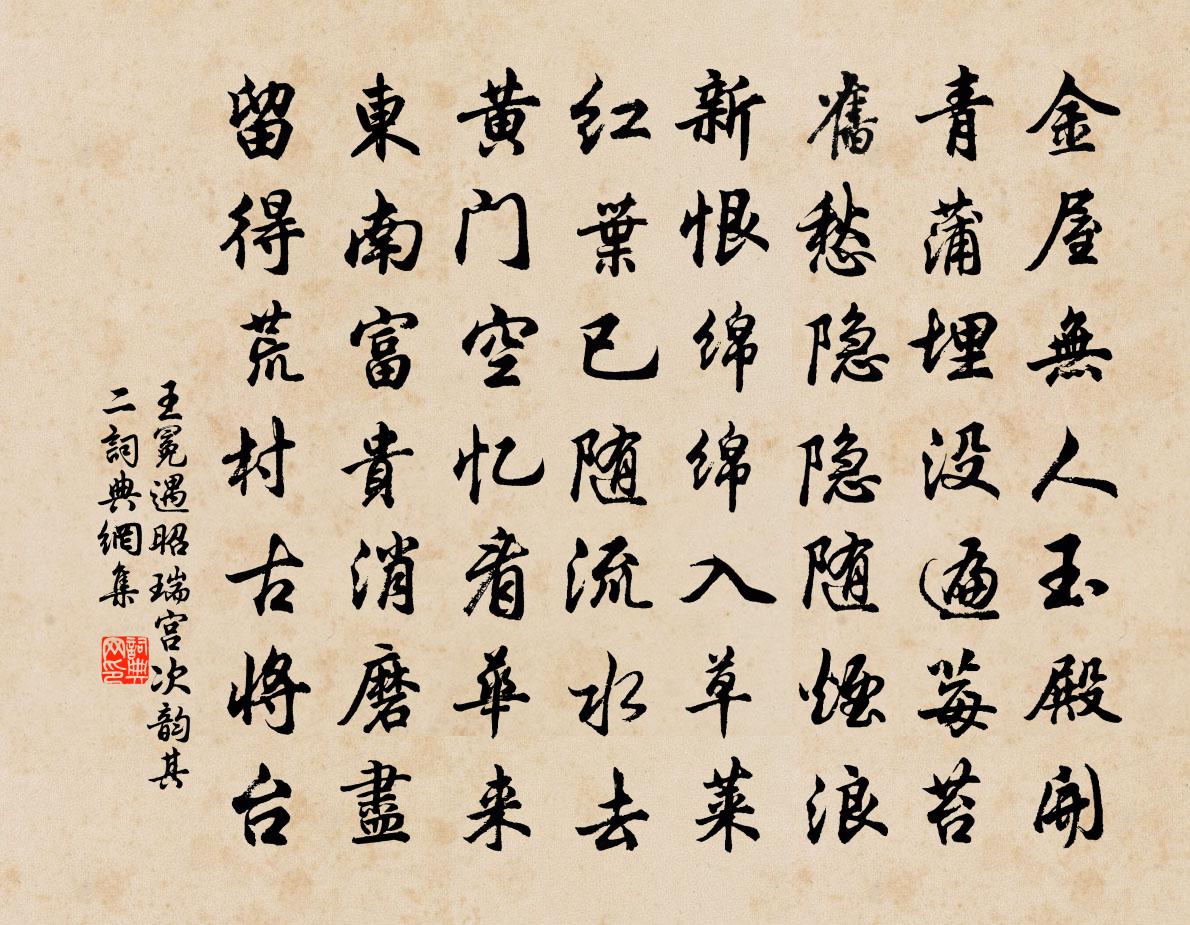 金屋無人玉殿開
青蒲埋没遍莓苔
舊愁隐隐随煙浪
新恨绵绵入草萊
红葉已随流水去
黄门空忆看華来
東南富貴消磨盡
留得荒村古将台
王冕遇昭瑞宫次韵其
二詞典網集
詞典
网印